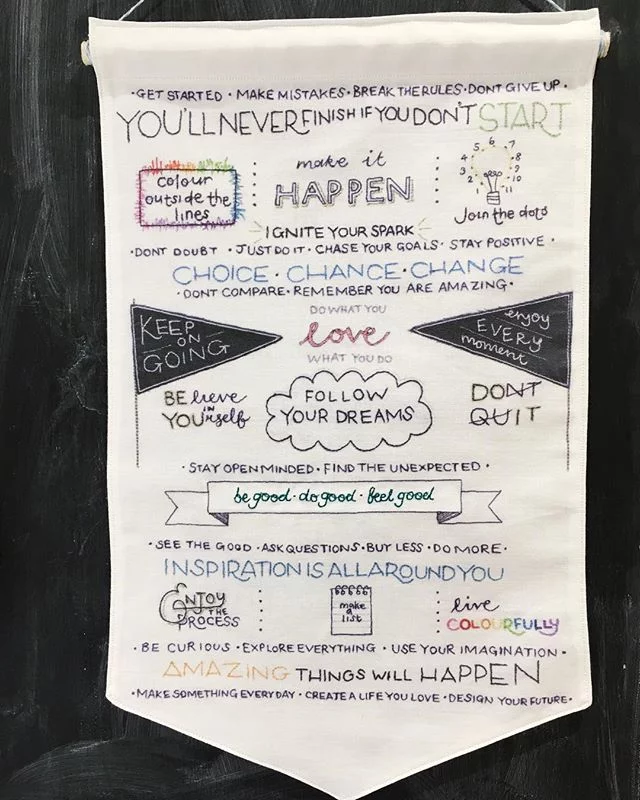 ·GET STARTED · MAKE MISTAKES · BREAK THE RULES · DONT GIVE UP ·
YOU'LL NEVER FINISH IF YOU DON'T START
colour
outside the
lines
make it
HAPPEN
1 2 3 4 5 6 7 8 9 10 11
Join the dots
IGNITE YOUR SPARK
·DONT DOUBT · JUST DO IT · CHASE YOUR GOALS · STAY POSITIVE ·
CHOICE · CHANCE · CHANGE
· DONT COMPARE · REMEMBER YOU ARE AMAZING ·
KEEP
ON
GOING
DO WHAT YOU
love
WHAT YOU DO
enjoy
EVERY
moment
BElieve
IN
YOUrself
FOLLOW
YOUR DREAMS
DONT
QUIT
· STAY OPEN MINDED · FIND THE UNEXPECTED ·
be good · do good · feel good
· SEE THE GOOD · ASK QUESTIONS · BUY LESS · DO MORE ·
INSPIRATION IS ALL AROUND YOU
ENJOY
THE
PROCESS
make
a
list
live
COLOURFULLY
· BE CURIOUS · EXPLORE EVERYTHING · USE YOUR IMAGINATION ·
AMAZING THINGS WILL HAPPEN
· MAKE SOMETHING EVERYDAY · CREATE A LIFE YOU LOVE · DESIGN YOUR FUTURE ·